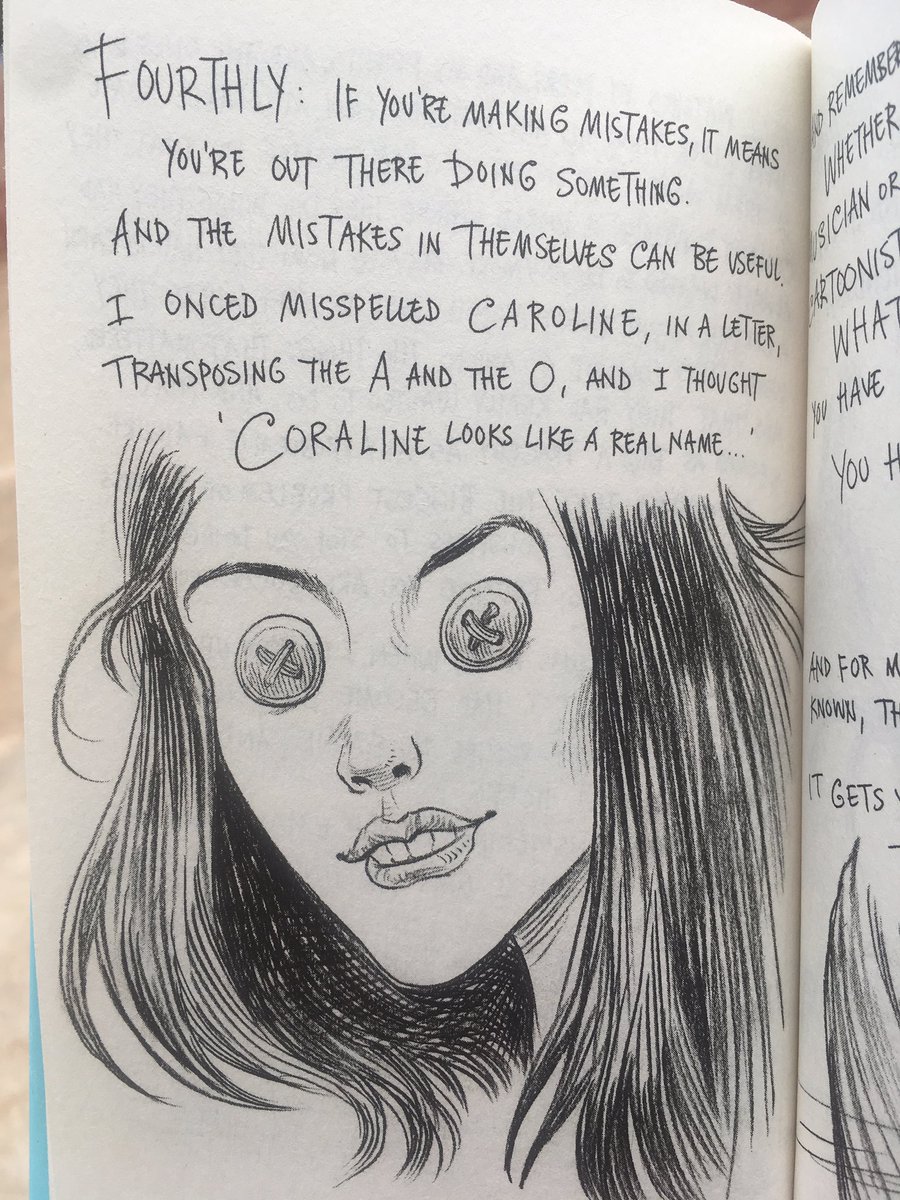 FOURTHLY: IF YOU'RE MAKING MISTAKES, IT MEANS
YOU'RE OUT THERE DOING SOMETHING.
AND THE MISTAKES IN THEMSELVES CAN BE USEFUL.
I ONCED MISSPELLED CAROLINE, IN A LETTER,
TRANSPOSING THE A AND THE O, AND I THOUGHT
'CORALINE LOOKS LIKE A REAL NAME...'
AND REMEMBER
WHETHER
MUSICIAN OR
CARTOONIST
WHAT
YOU HAVE
YOU
AND FOR
KNOWN,
IT GETS